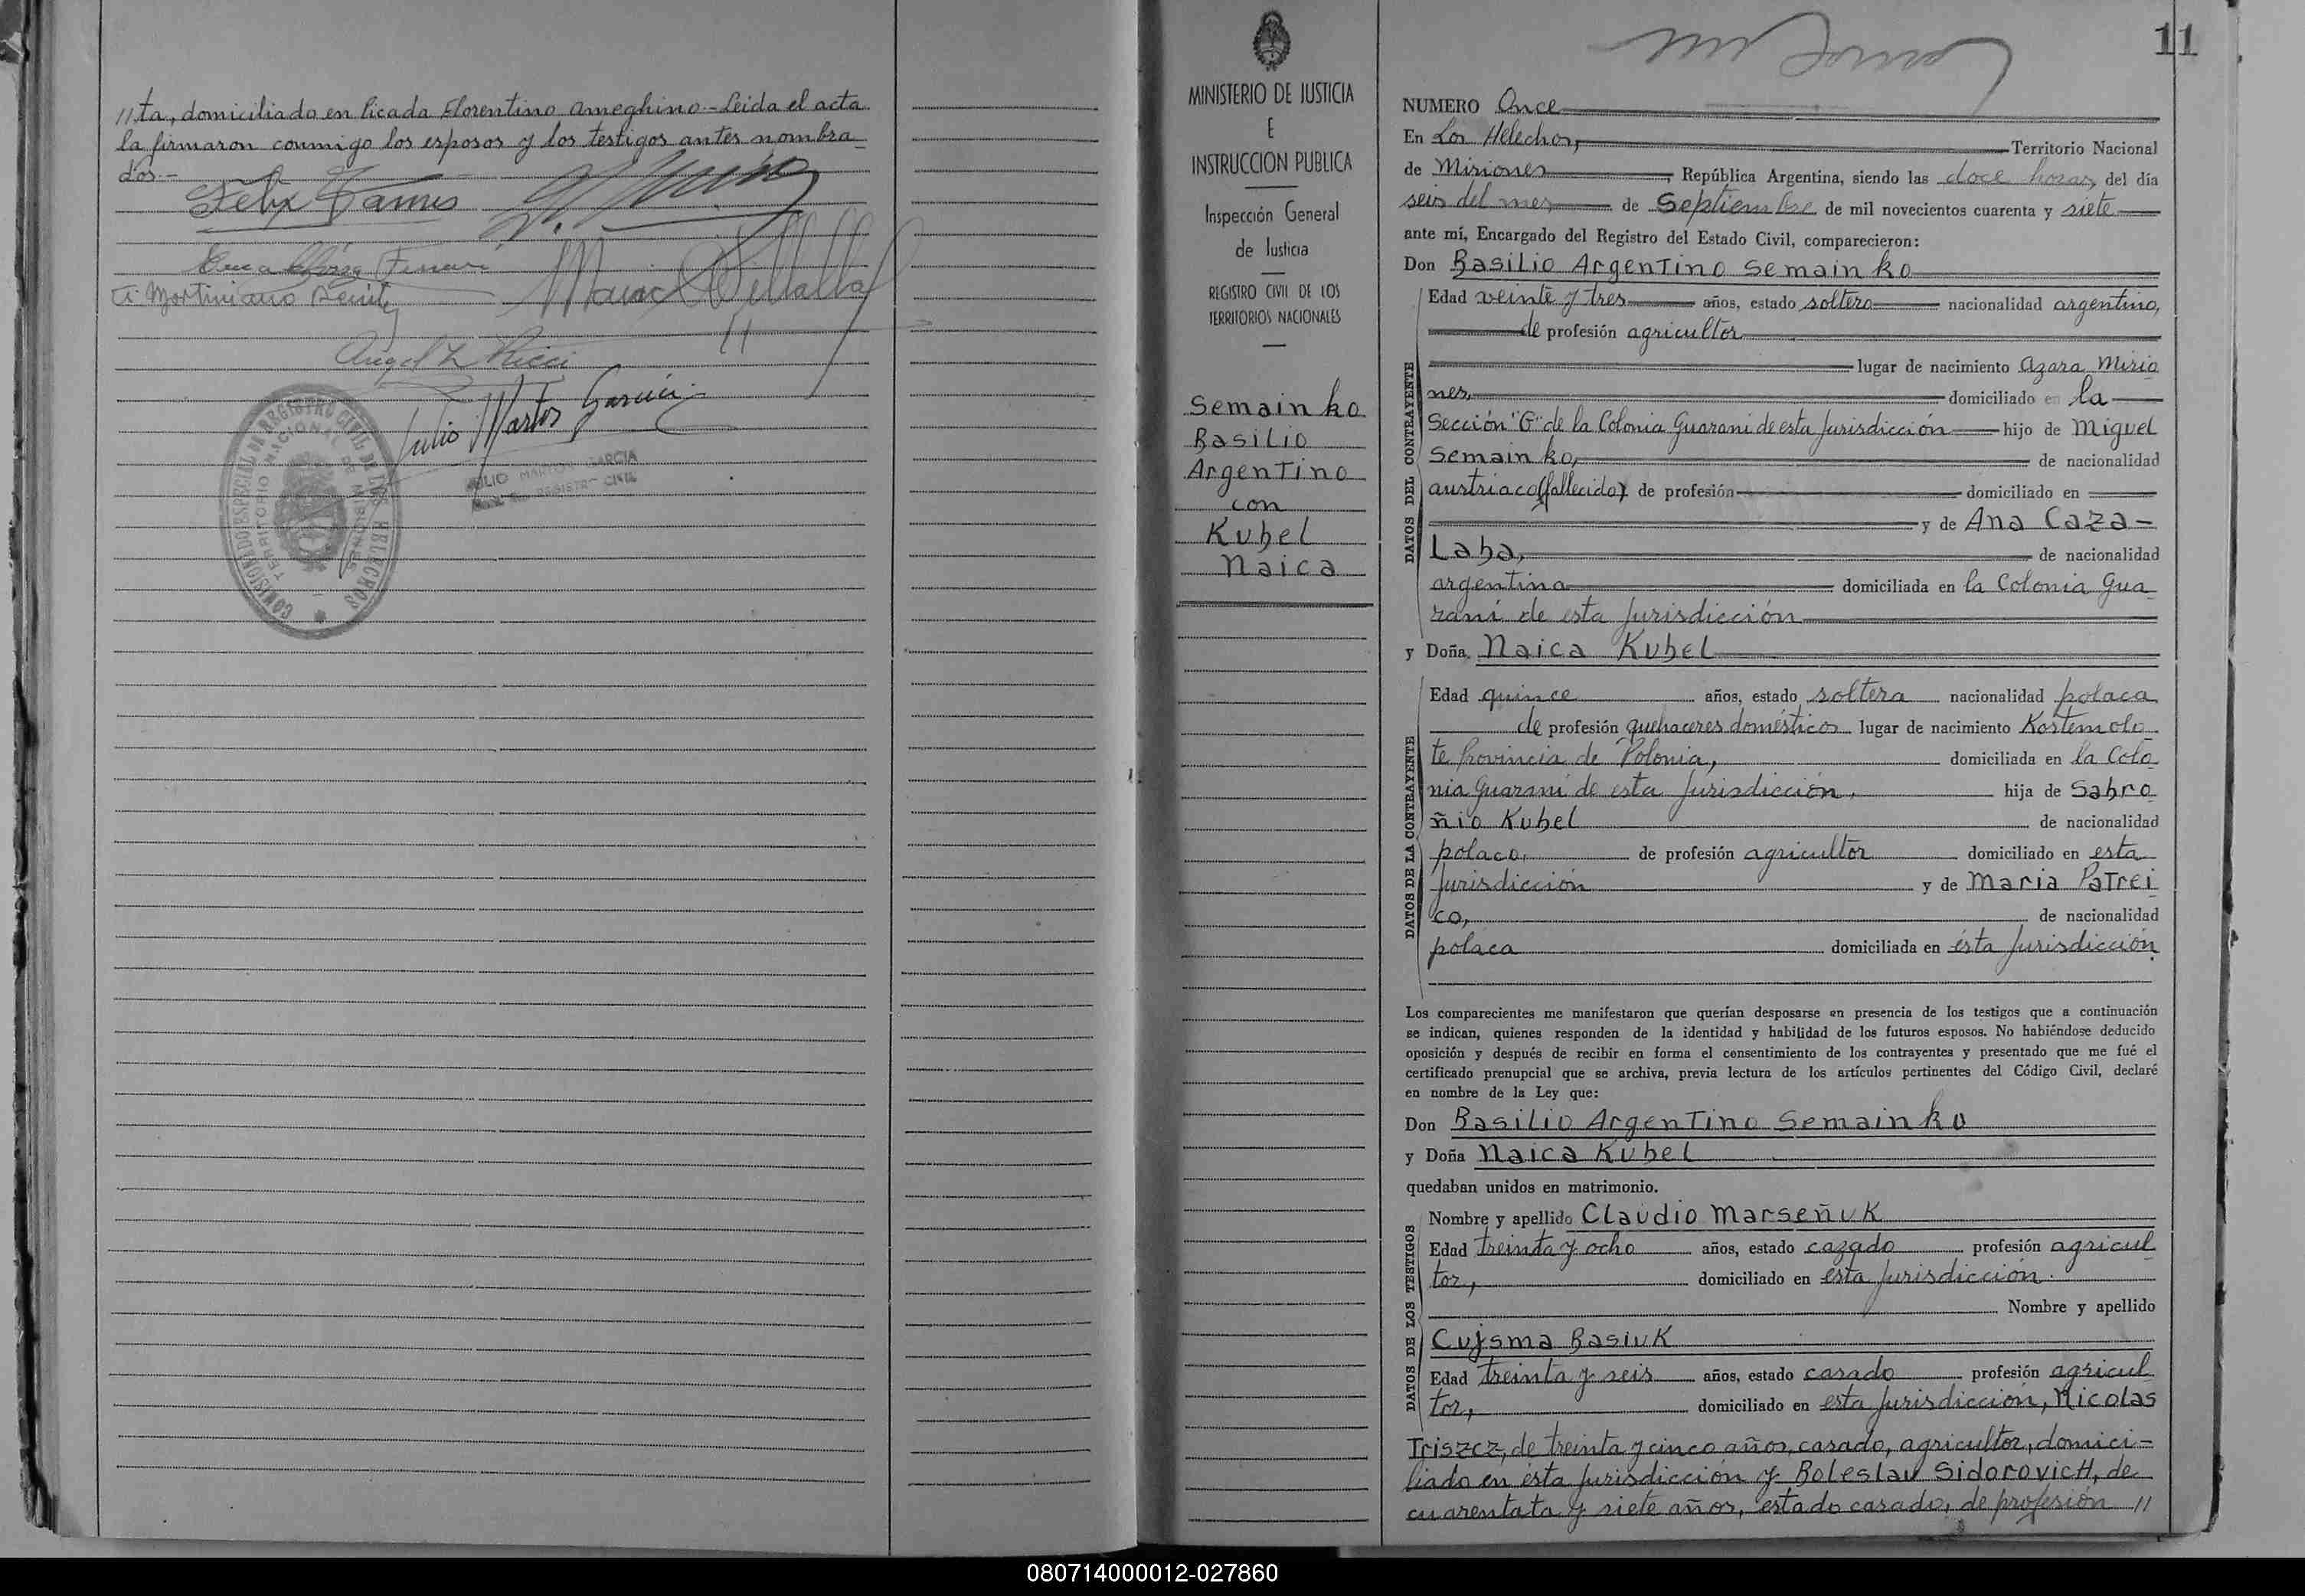 //ta, domiciliado en Picada Florentino Ameghino.- Leida el acta
la firmaron conmigo los esposos y los testigos antes nombra_
dos.-
Angel L Ricci
Julio Martos Garcia
COMISIONADO ESPECIAL DE REGISTRO CIVIL DE LOS HELECHOS
TERRITORIO NACIONAL DE MISIONES
JULIO MARTOS GARCIA
REGISTRO CIVIL
MINISTERIO DE JUSTICIA
E
INSTRUCCION PUBLICA
Inspección General
de Justicia
REGISTRO CIVIL DE LOS
TERRITORIOS NACIONALES
Semainko
Basilio
Argentino
con
Kubel
Naica
11
NUMERO Once
En Los Helechos, Territorio Nacional
de Misiones, República Argentina, siendo las doce horas, del día
seis del mes de Septiembre de mil novecientos cuarenta y siete
ante mí, Encargado del Registro del Estado Civil, comparecieron:
Don Basilio Argentino Semainko
DATOS DEL CONTRAYENTE
Edad veinte y tres años, estado soltero nacionalidad argentino,
de profesión agricultor
lugar de nacimiento Azara Misio
nes, domiciliado en la
Sección "G" de la Colonia Guarani de esta Jurisdicción hijo de Miguel
Semainko, de nacionalidad
austriaco (fallecido) de profesión domiciliado en
y de Ana Caza-
Laba, de nacionalidad
argentina domiciliada en la Colonia Gua_
raní de esta Jurisdicción
y Doña Naica Kubel
DATOS DE LA CONTRAYENTE
Edad quince años, estado soltera nacionalidad polaca
de profesión quehaceres domésticos lugar de nacimiento Kostemolo_
te Provincia de Polonia, domiciliada en la Colo_
nia Guaraní de esta Jurisdicción. hija de Sabro_
ñio Kubel de nacionalidad
polaco, de profesión agricultor domiciliado en esta
Jurisdicción y de Maria Patrei
co, de nacionalidad
polaca domiciliada en ésta Jurisdicción.
Los comparecientes me manifestaron que querían desposarse en presencia de los testigos que a continuación
se indican, quienes responden de la identidad y habilidad de los futuros esposos. No habiéndose deducido
oposición y después de recibir en forma el consentimiento de los contrayentes y presentado que me fué el
certificado prenupcial que se archiva, previa lectura de los artículos pertinentes del Código Civil, declaré
en nombre de la Ley que:
Don Basilio Argentino Semainko
y Doña Naica Kubel
quedaban unidos en matrimonio.
DATOS DE LOS TESTIGOS
Nombre y apellido Claudio Marseñuk
Edad treinta y ocho años, estado cazado profesión agricul_
tor, domiciliado en esta Jurisdicción.
Nombre y apellido
Cujsma Basiuk
Edad treinta y seis años, estado casado profesión agricul_
tor, domiciliado en esta Jurisdicción, Nicolas
Triszcz, de treinta y cinco años, casado, agricultor, domici-
liado en ésta Jurisdicción y Boleslau Sidorovich, de
cuarentata y siete años, estado casado, de profesión //
080714000012-027860